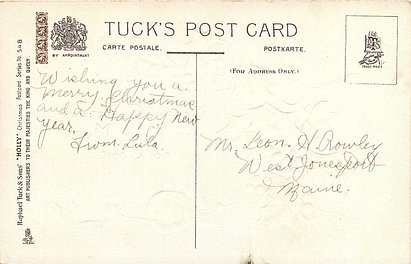 TUCK'S POST CARD
CARTE POSTALE.
POSTKARTE.
BY APPOINTMENT
(FOR ADDRESS ONLY.)
TRADE MARK
Raphael Tuck & Sons' "HOLLY" Christmas Postcard Series No. 548
ART PUBLISHERS TO THEIR MAJESTIES THE KING AND QUEEN
Wishing you a
Merry Christmas
and a Happy New
Year.
From Lula.
Mr. Leon. H Crowley
West Jonesport
Maine.